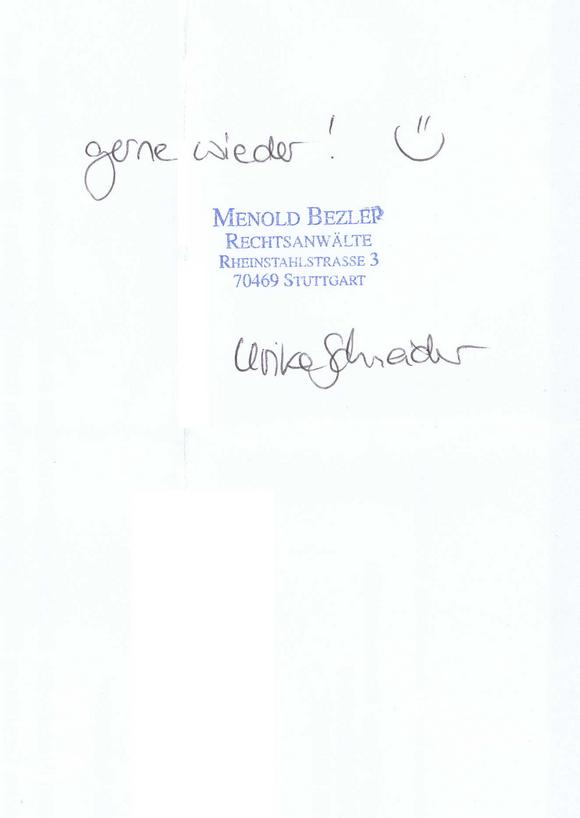 gerne wieder !
MENOLD BEZLER
RECHTSANWÄLTE
RHEINSTAHLSTRASSE 3
70469 STUTTGART
Ulrike Schneider